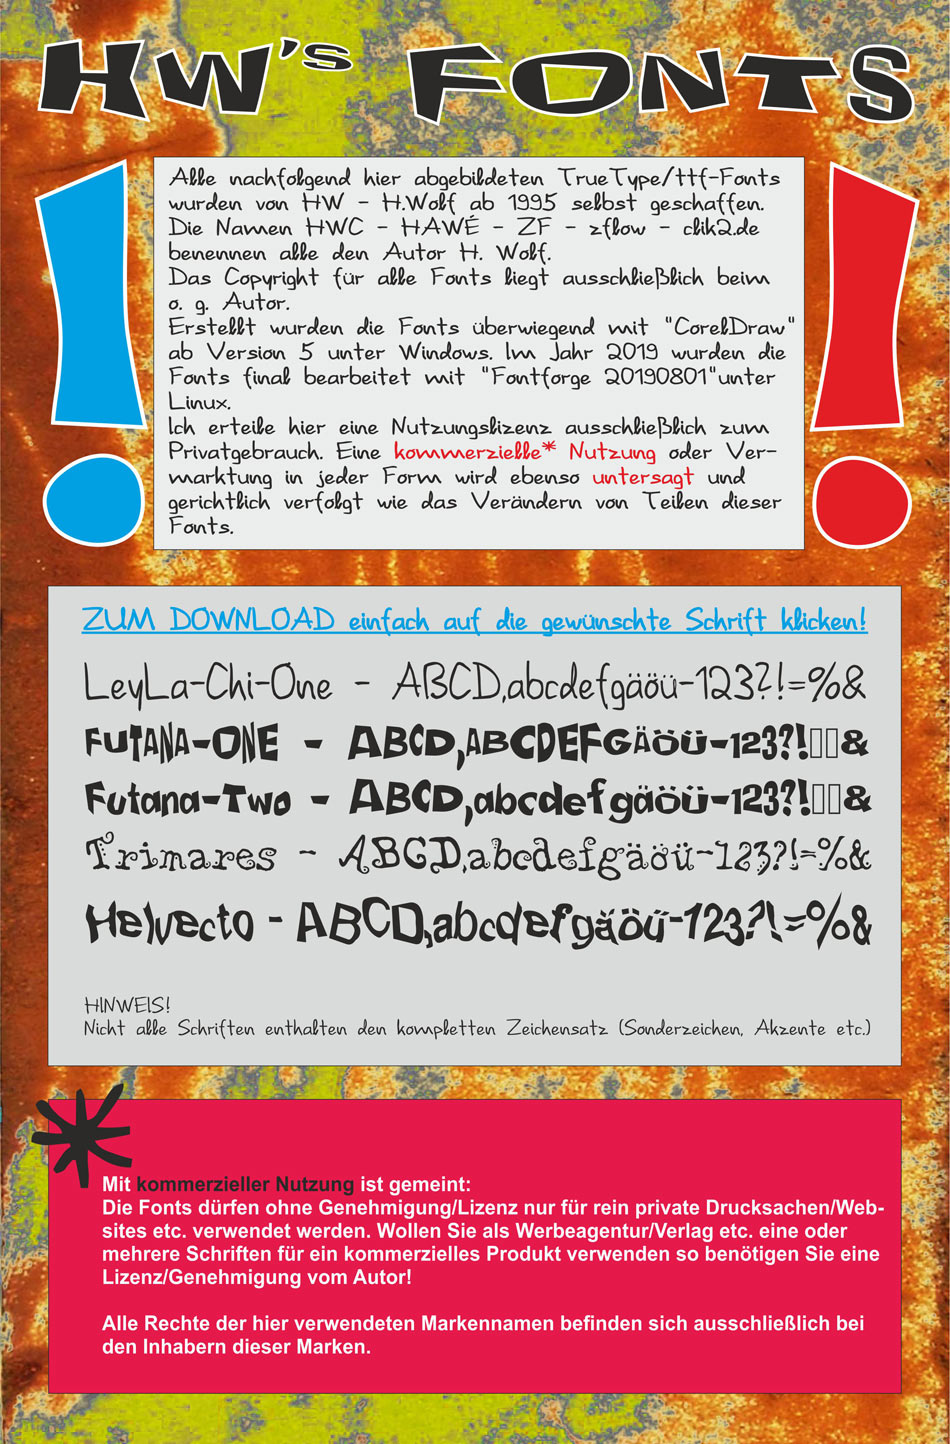 HW's FONTS
Alle nachfolgend hier abgebildeten TrueType/ttf-Fonts
wurden von HW - H.Wolf ab 1995 selbst geschaffen.
Die Namen HWC - HAWÉ - ZF - zflow - clik2.de
benennen alle den Autor H. Wolf.
Das Copyright für alle Fonts liegt ausschließlich beim
o. g. Autor.
Erstellt wurden die Fonts überwiegend mit "CorelDraw"
ab Version 5 unter Windows. Im Jahr 2019 wurden die
Fonts final bearbeitet mit "Fontforge 20190801"unter
Linux.
Ich erteile hier eine Nutzungslizenz ausschließlich zum
Privatgebrauch. Eine kommerzielle* Nutzung oder Ver-
marktung in jeder Form wird ebenso untersagt und
gerichtlich verfolgt wie das Verändern von Teilen dieser
Fonts.
ZUM DOWNLOAD einfach auf die gewünschte Schrift klicken!
LeyLa-Chi-One - ABCD,abcdefgäöü-123?!=%&
FUTANA-ONE - ABCD,ABCDEFGÄÖÜ-123?!▯▯&
Futana-Two - ABCD,abcdefgäöü-123?!▯▯&
Trimares - ABCD,abcdefgäöü-123?!=%&
Helvecto - ABCD,abcdefgäöü-123?!=%&
HINWEIS!
Nicht alle Schriften enthalten den kompletten Zeichensatz (Sonderzeichen, Akzente etc.)
*
Mit kommerzieller Nutzung ist gemeint:
Die Fonts dürfen ohne Genehmigung/Lizenz nur für rein private Drucksachen/Web-
sites etc. verwendet werden. Wollen Sie als Werbeagentur/Verlag etc. eine oder
mehrere Schriften für ein kommerzielles Produkt verwenden so benötigen Sie eine
Lizenz/Genehmigung vom Autor!
Alle Rechte der hier verwendeten Markennamen befinden sich ausschließlich bei
den Inhabern dieser Marken.